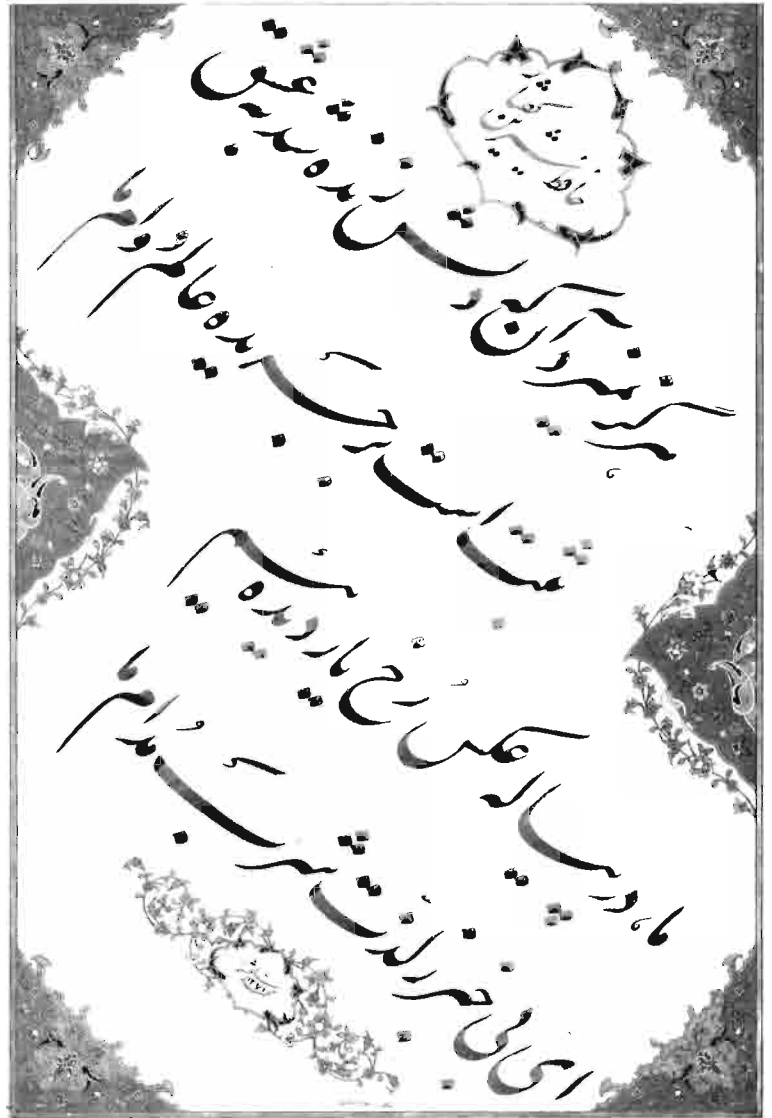 هرگز نمیرد آنکه دلش زنده شد بعشق
ثبت است بر جریدۀ عالم دوام ما
ما در پیاله عکس رخ یار دیده‌ایم
ای بی خبر ز لذت شرب مدام ما